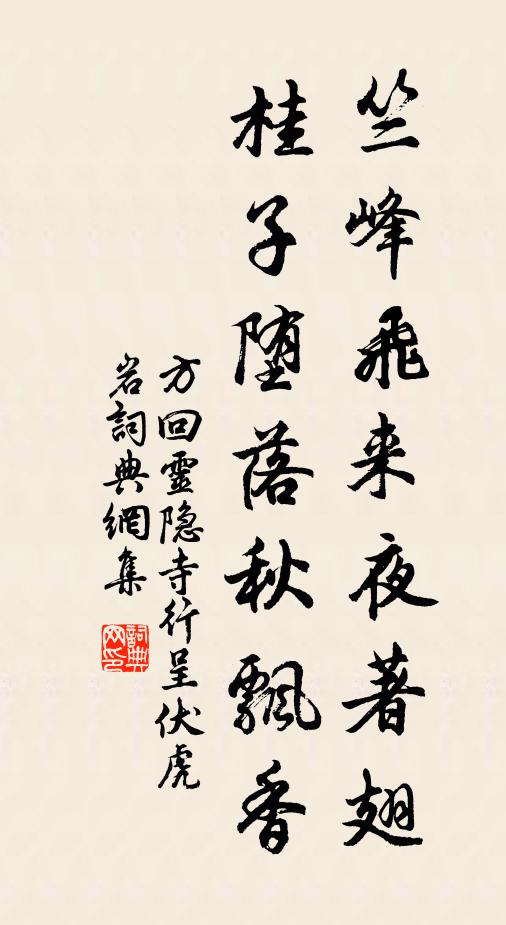 竺峰飛来夜著翅
桂子堕落秋飄香
方回靈隐寺行呈伏虎
岩詞典網集
詞典
网印